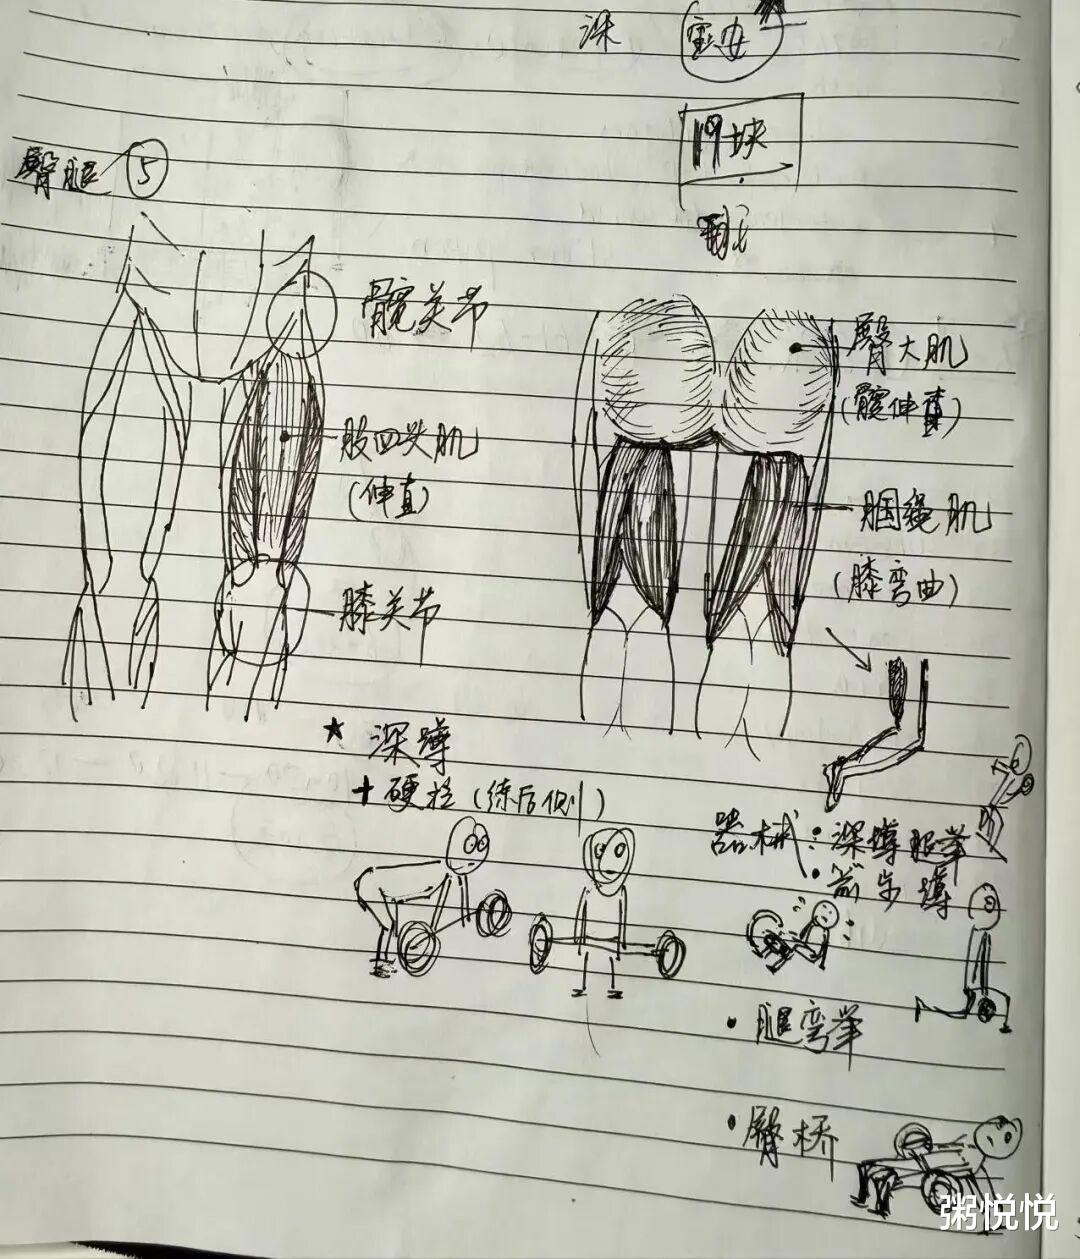 深 宝安
19块
臀腿 5
髋关节
股四头肌
(伸直)
膝关节
臀大肌
(髋伸直)
腘绳肌
(膝弯曲)
★ 深蹲
+ 硬拉 (练后侧)
器械:深蹲
· 前步蹲
· 腿弯举
· 臀桥
粥悦悦